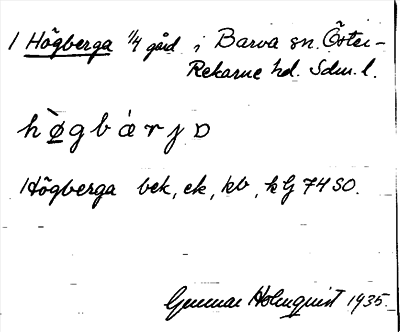 1 Högberga 1/4 gård i Barva sn. Öster-
Rekarne hd. Sdm. l.
hø̀gbárjɒ
Högberga bek, ek, kb, hLj 74 SO.
Gunnar Holmquist 1935.